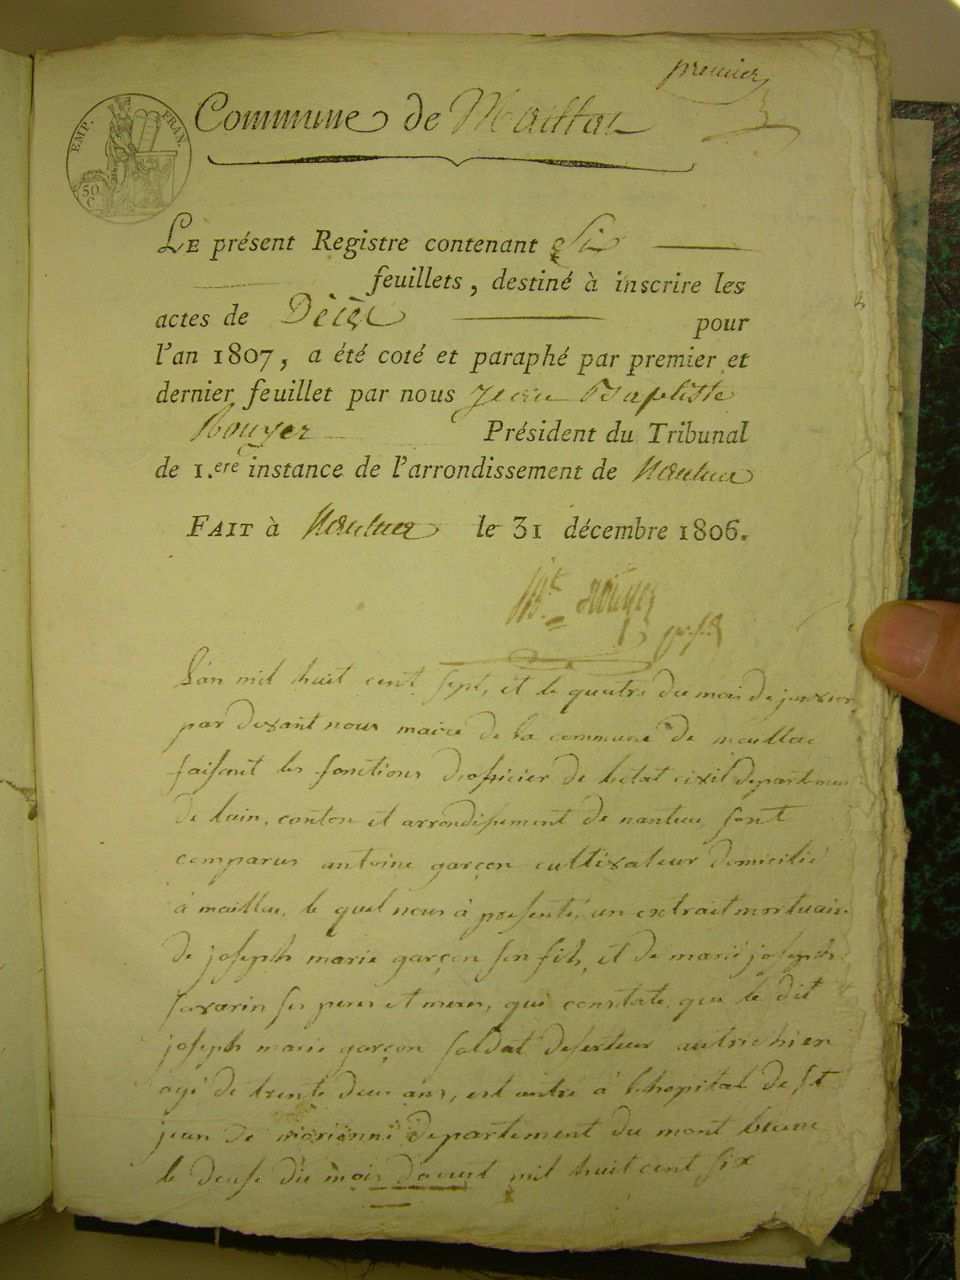 premier
EMP. FRAN.
50 C
Commune de Maillat
LE présent Registre contenant Six
feuillets, destiné à inscrire les
actes de Décès pour
l'an 1807, a été coté et paraphé par premier et
dernier feuillet par nous Jean Baptiste
Rouyer Président du Tribunal
de 1.ere instance de l'arrondissement de Nantua
FAIT à Nantua le 31 décembre 1806.
Rouyer
L'an mil huit cent sept, et le quatre du mois de janvier
par devant nous maire de la commune de maillac
faisent les fonctions d'officier de letat civil departement
de lain, conton et arrondisement de nantua, sont
comparus antoine garçon cultivateur domicilié
à maillac, le quel nous à presenté, un extrait mortuair
de joseph marie garçon son fils, et de marie joseph
savarin ses peres et meres, qui constate que le dit
joseph marie garçon soldat deserteur autrichien
agé de trente deux ans, est entré à lhopital de st
jean de morienne departement du mont blanc
le douse du mois daout mil huit cent six